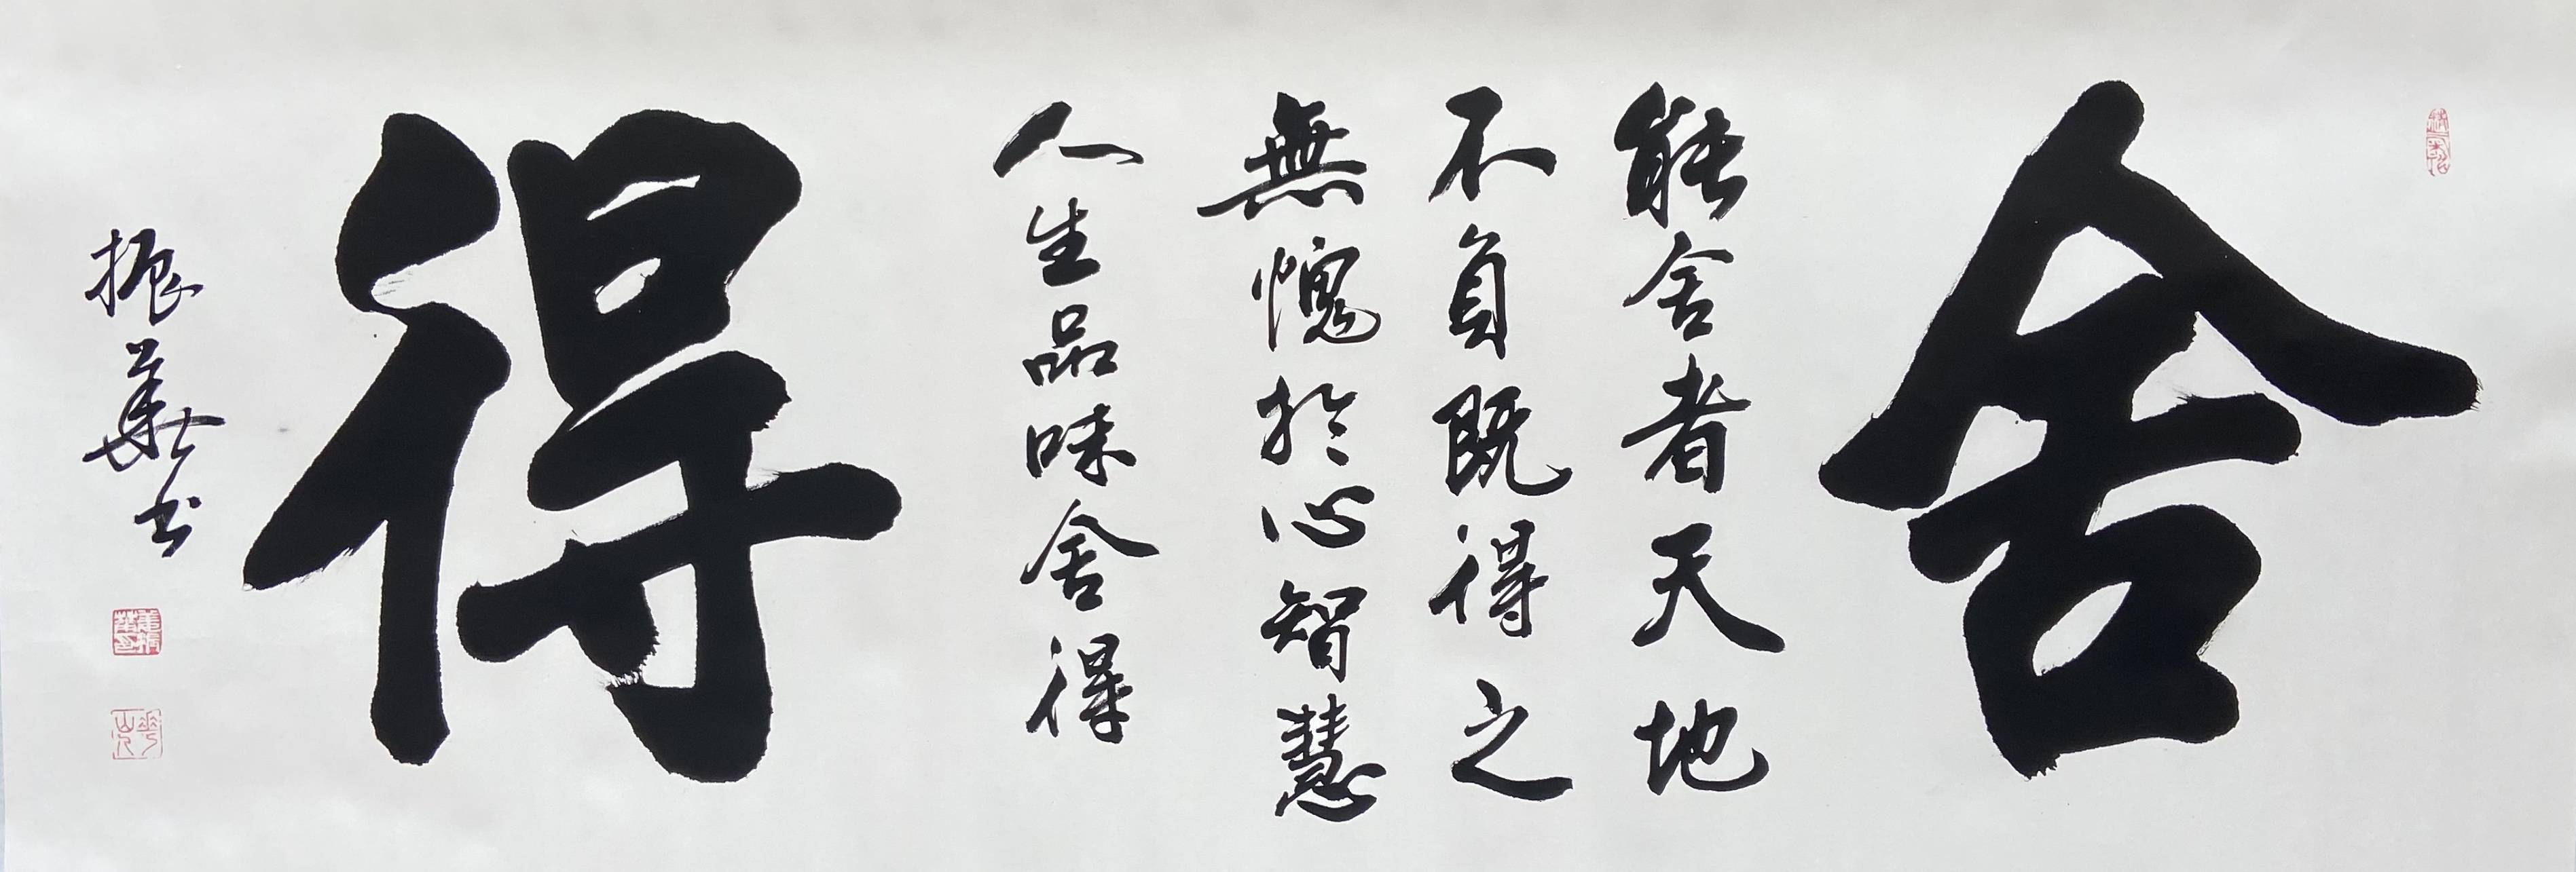 舍
能舍者天地
不負既得之
無愧於心智慧
人生品味舍得
得
振華書